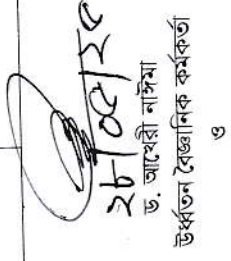 ২৮/০৫/২৫
ড. আখেরী নাঈমা
উর্ধ্বতন বৈজ্ঞানিক কর্মকর্তা
ও